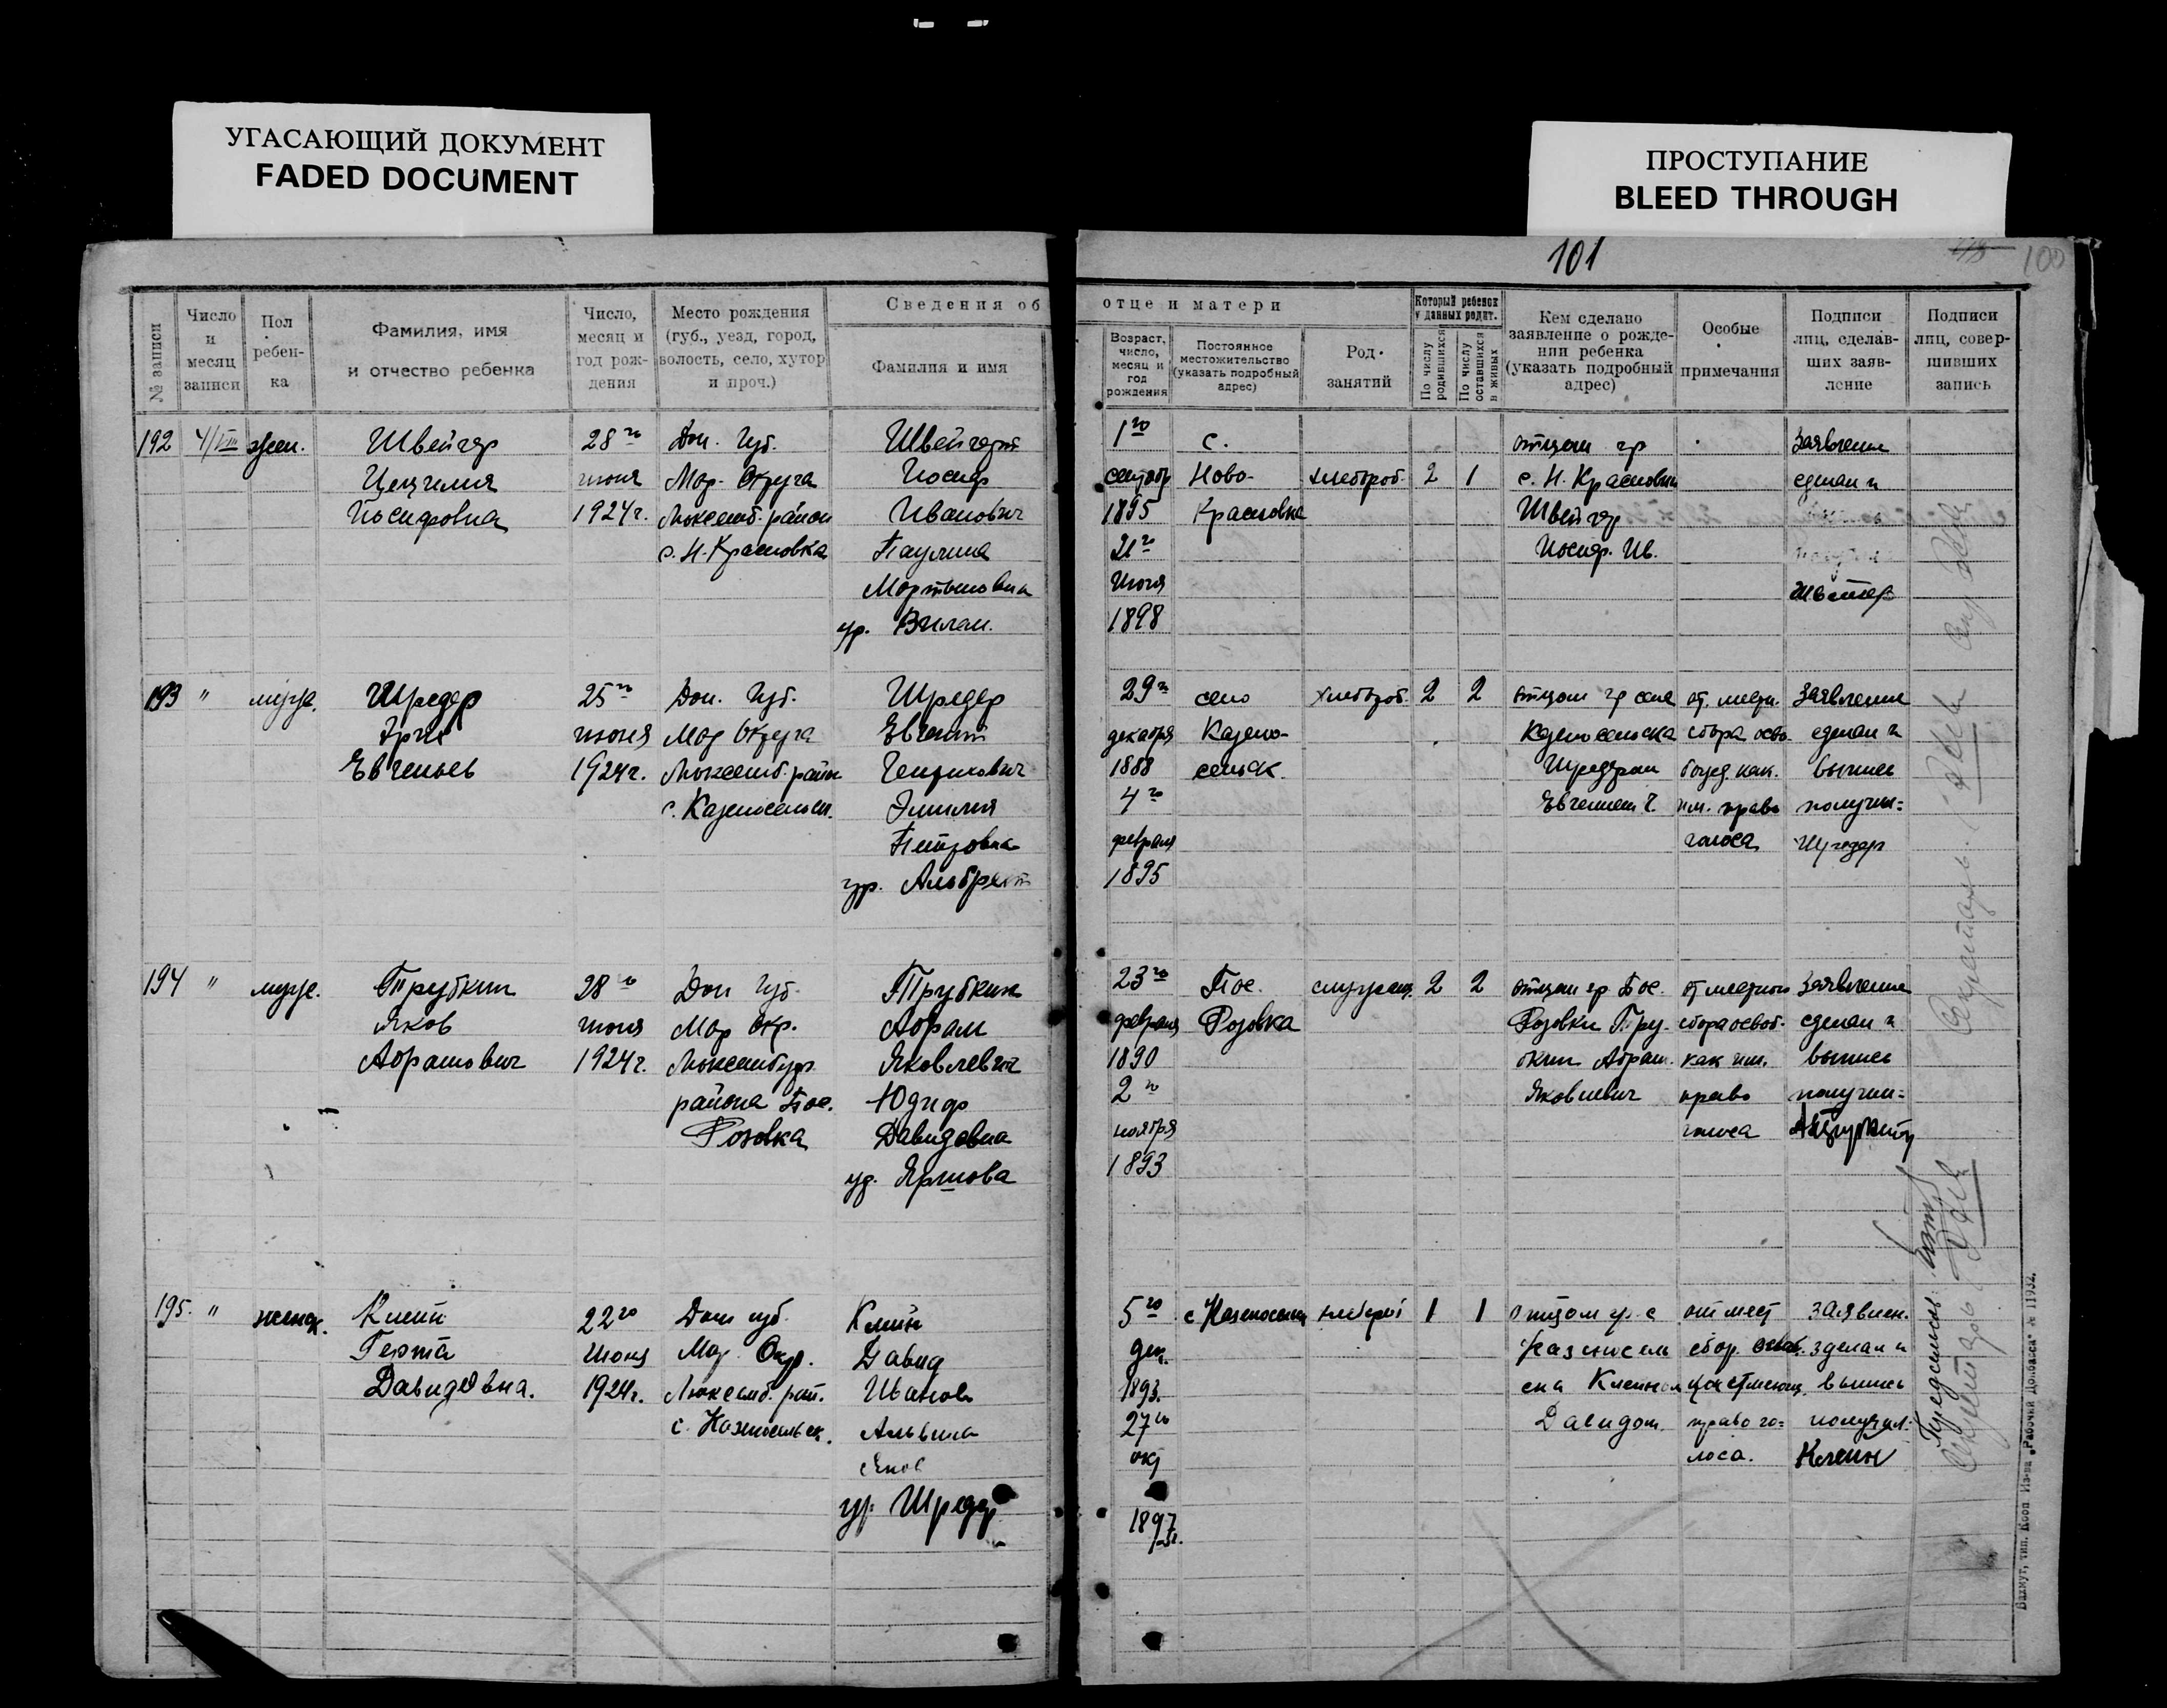 УГАСАЮЩИЙ ДОКУМЕНТ
FADED DOCUMENT
ПРОСТУПАНИЕ
BLEED THROUGH
101
100
№ записи
Число
и
месяц
записи
Пол
ребен-
ка
Фамилия, имя
и отчество ребенка
Число,
месяц и
год рож-
дения
Место рождения
(губ., уезд, город,
волость, село, хутор
и проч.)
Сведения об
Фамилия и имя
отце и матери
Возраст,
число,
месяц и
год
рождения
Постоянное
местожительство
(указать подробный
адрес)
Род
занятий
Который ребенок
у данных родит.
По числу
родившихся
По числу
оставшихся
в живых
Кем сделано
заявление о рожде-
нии ребенка
(указать подробный
адрес)
Особые
примечания
Подписи
лиц, сделав-
ших заяв-
ление
Подписи
лиц, совер-
шивших
запись
192
4/VIII
жен.
Швейгер
Цецилия
Иосифовна
28го
июня
1924г.
Дон. Губ.
Мар. Округа
Люксемб. район
с. Н. Красновка
Швейгерт
Иосиф
Иванович
Паулина
Мартыновна
ур.
1го
сентябр
1895
21го
Июня
1898
с.
Ново-
Красновка
хлебороб.
2
1
отцом гр
с. Н. Красновки
Швейгер
Иосиф. Ив.
Заявление
сделал и
193
"
мужс.
Шредер
Эрих
Евгеньев
25го
июня
1924г.
Дон. Губ.
Мар Округа
Люксемб. район
с. Казеносельск.
Шредер
Евгений
Генрихович
Эмилия
Петровна
ур. Альбрехт
29го
декабря
1888
4го
февраля
1895
село
Казено-
сельск.
хлебороб.
2
2
отцом гр села
Казеносельска
Шредером
Евгением Г.
от. местн.
сбора осво-
божд. как.
им. право
голоса
Заявление
сделал и
выпись
получил:
Шредер
194
"
мужс.
Трубкин
Яков
Абрамович
28го
июня
1924г.
Дон Губ.
Мар Окр.
Люксембург
района Пос.
Розовка
Трубкин
Абрам
Яковлевич
Юдифь
Давидовна
ур.
23го
февраля
1890
2го
ноября
1893
Пос.
Розовка
служащ.
2
2
отцом гр Пос.
Розовки Тру-
бкин Абрам.
Яковлевич
от местного
сбора освоб.
как им.
право
голоса
Заявление
сделал и
выпись
получил:
195.
"
женск.
Клейн
Герта
Давидовна.
22го
Июня
1924г.
Дон губ.
Мар. Окр.
Люксемб. рай.
с. Казеносельск.
Клейн
Давид
Иванов
Альвина
Яков
ур. Шредер
5го
дек.
1893.
27го
окт
1897
г.
с Казеносельск
хлебороб
1
1
отцом гр. с
Казеносель
ска Клейном
Давидом.
от мест
сбор. освоб.
право го-
лоса.
заявлен.
зделал и
выпись
получил:
Клейн
Председатель
Секретарь
Секретарь
Бахмут, тип. Кооп. Из-ва „Рабочий Донбасса" № 11932.